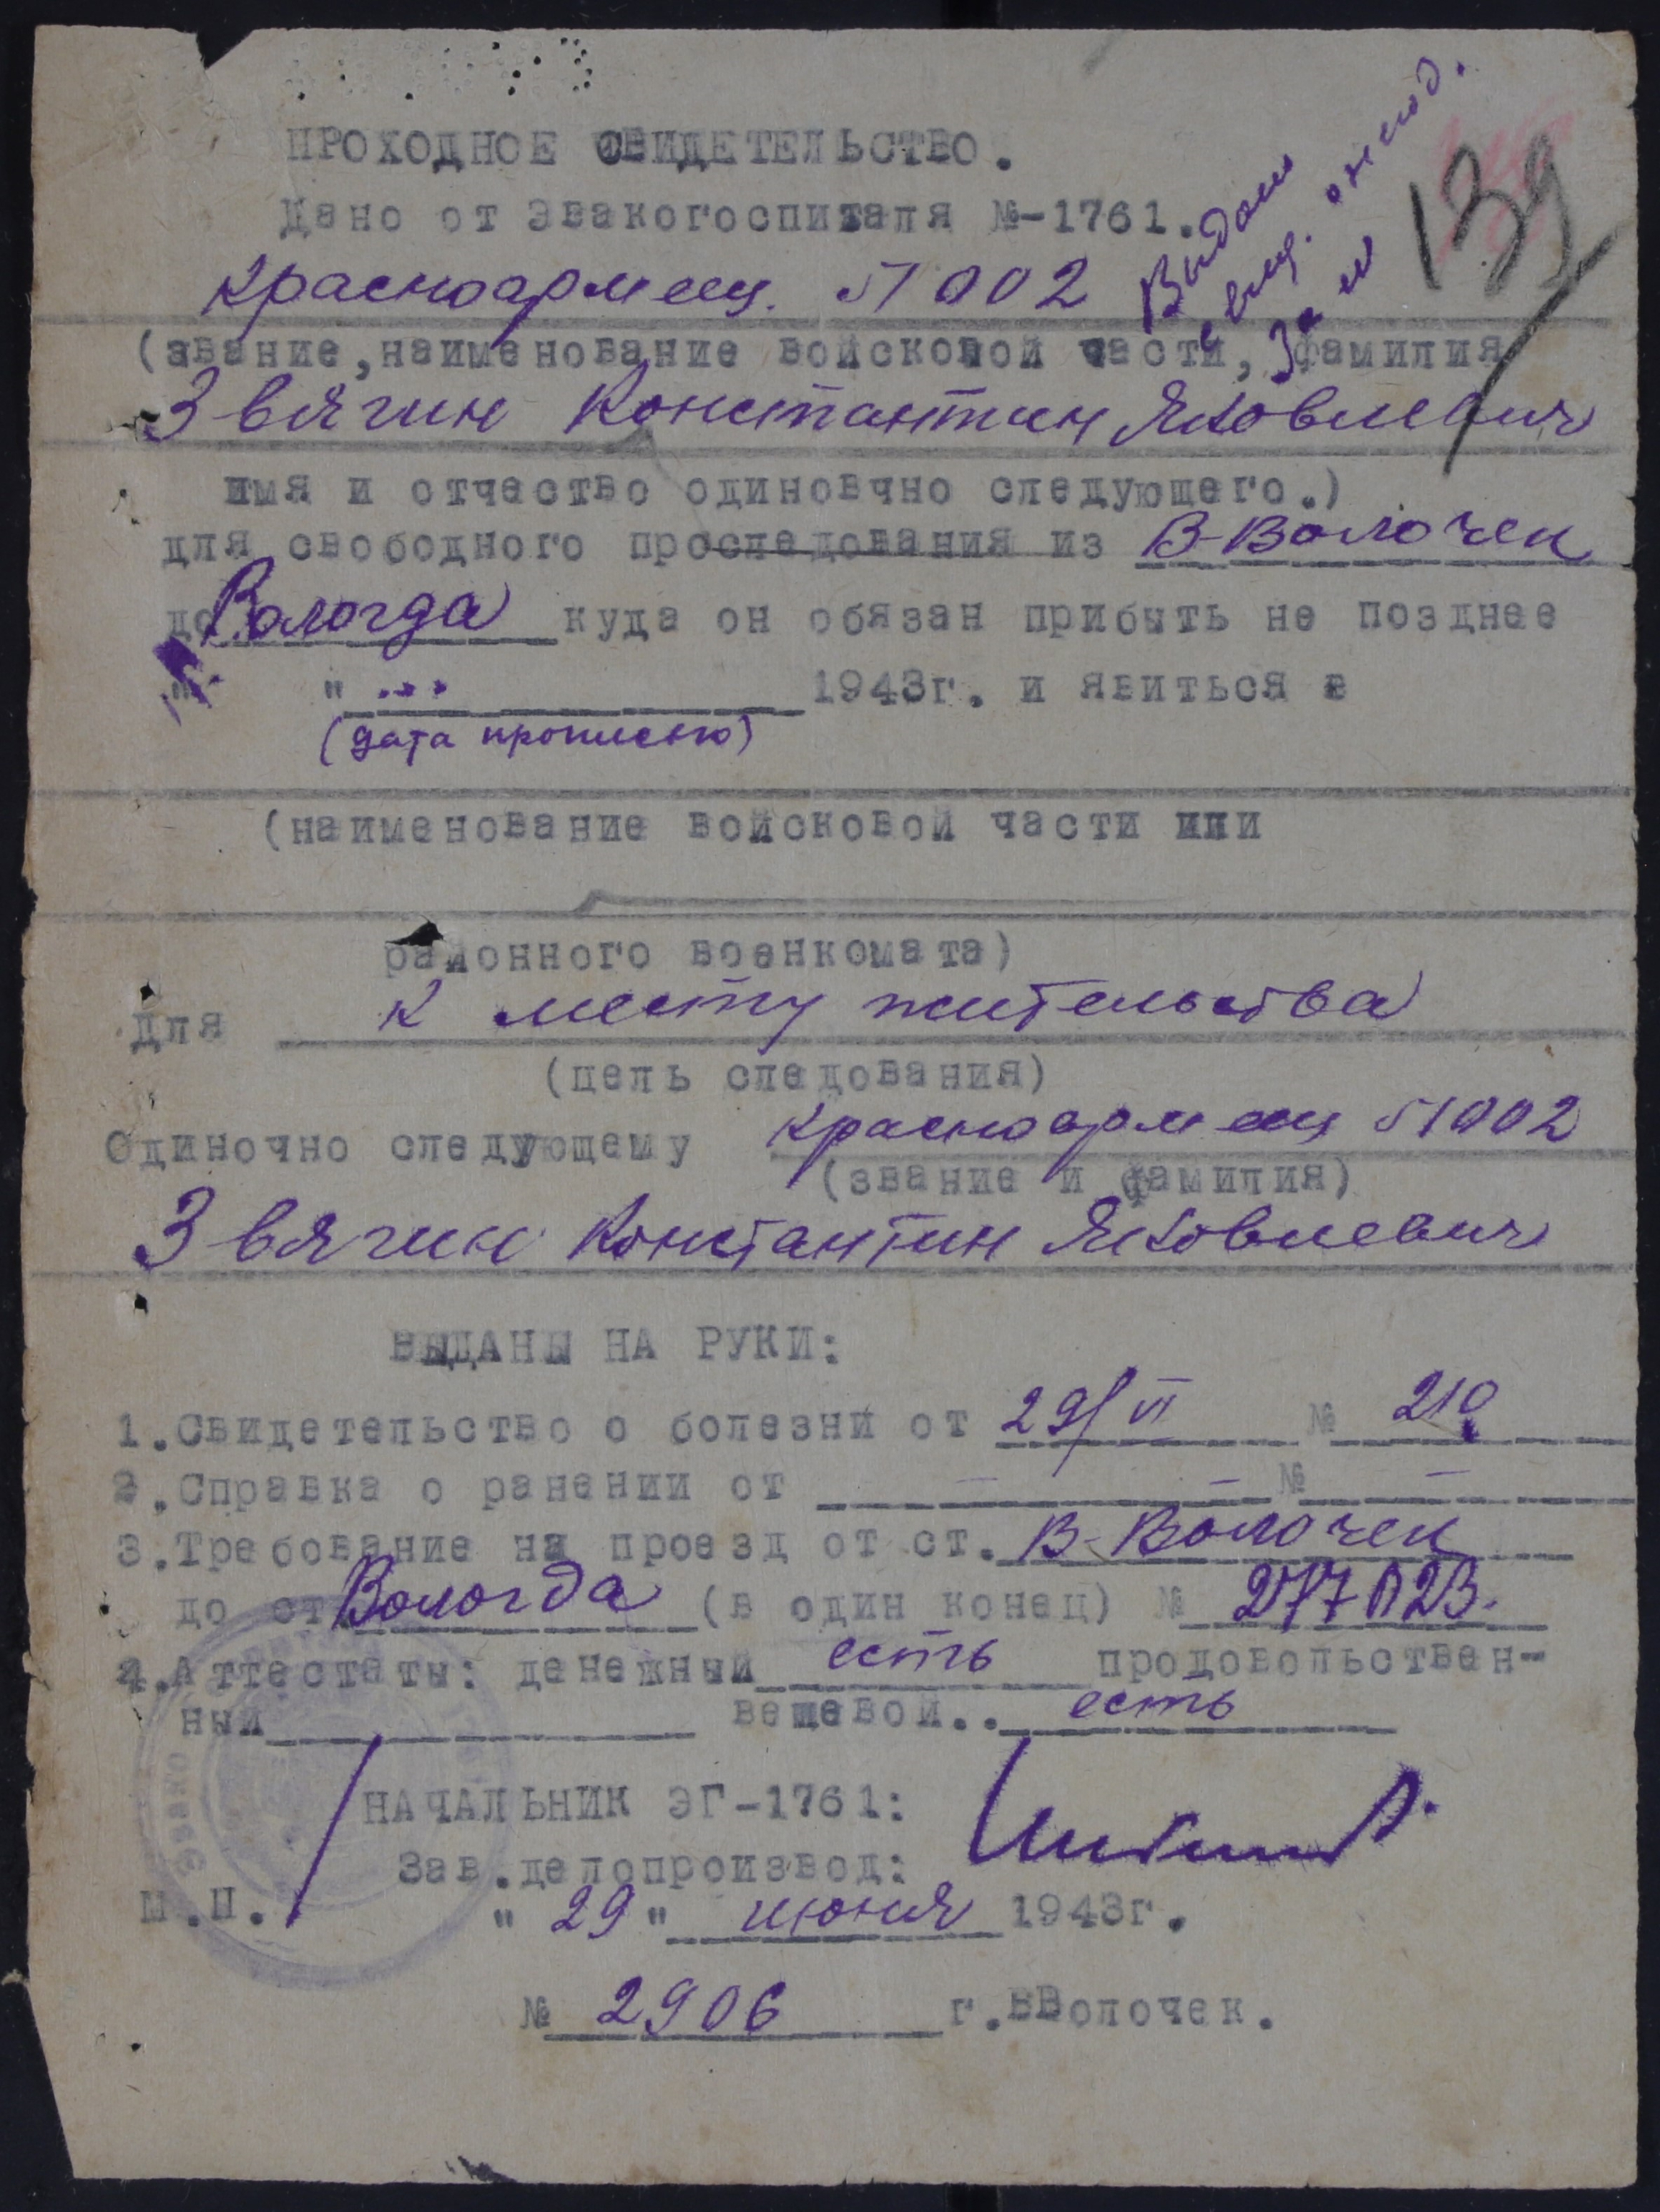 ПРОХОДНОЕ СВИДЕТЕЛЬСТВО.
Дано от Эвакогоспиталя №-1761.
Выдан
139
Красноармеец. П 002
(звание, наименование войсковой части, фамилия
Звягин Константин Яковлевич
имя и отчество одиновчно следующего.)
для свободного проследования из В-Волочек
до Вологда куда он обязан прибыть не позднее
" " 1943г. и явиться в
(дата прописью)
(наименование войсковой части или
районного военкомата)
Для к месту жительства
(цель следования)
Одиночно следующему Красноармеец П 002
(звание и фамилия)
Звягин Константин Яковлевич
ВЫДАНЫ НА РУКИ:
1.Свидетельство о болезни от 29/VI № 210
2.Справка о ранении от — — № —
3.Требование на проезд от ст. В-Волочек
до ст Вологда (в один конец) №
4.Аттестаты: денежный есть продовольствен-
ный вещевой.. есть
НАЧАЛЬНИК ЭГ-1761:
Зав.делопроизвод:
М.П. "29" июня 1943г.
№ 2906 г.ВВолочек.
Эвако